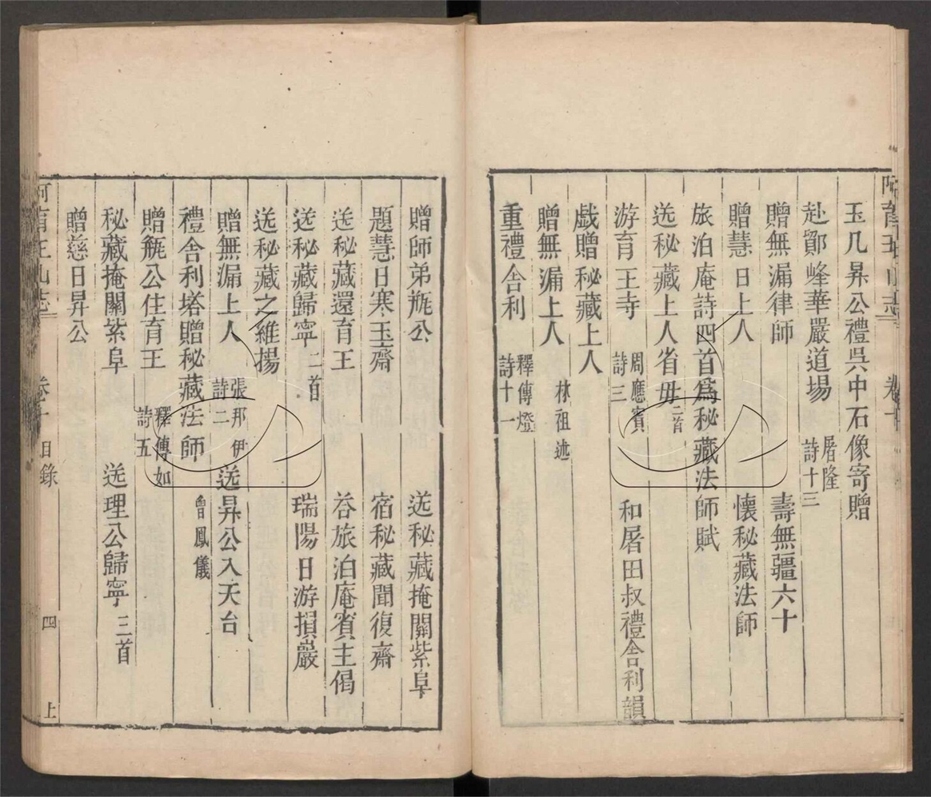 阿育王山志 卷十
玉几昇公禮吳中石像寄贈
赴鄮峰華嚴道場 屠隆詩十三
贈無漏律師 壽無疆六十
贈慧日上人 懷秘藏法師
旅泊庵詩四首爲秘藏法師賦
送秘藏上人省母 二首
游育王寺 周應賓詩三 和屠田叔禮舍利韻
戲贈秘藏上人
贈無漏上人 林祖述
重禮舍利 釋傳燈詩十一
贈師弟㼾公 送秘藏掩關紫阜
題慧日寒玉齋 宿秘藏聞復齋
送秘藏還育王 荅旅泊庵賓主偈
送秘藏歸寧 二首 瑞陽日游損巖
送秘藏之維揚
贈無漏上人 張邦伊詩二 送昇公入天台
禮舍利塔贈秘藏法師 曾鳳儀
贈㼾公住育王 釋傳如詩五
秘藏掩關紫阜 送理公歸寧 三首
贈慈日昇公
阿育王山志 卷十 目錄 四 上